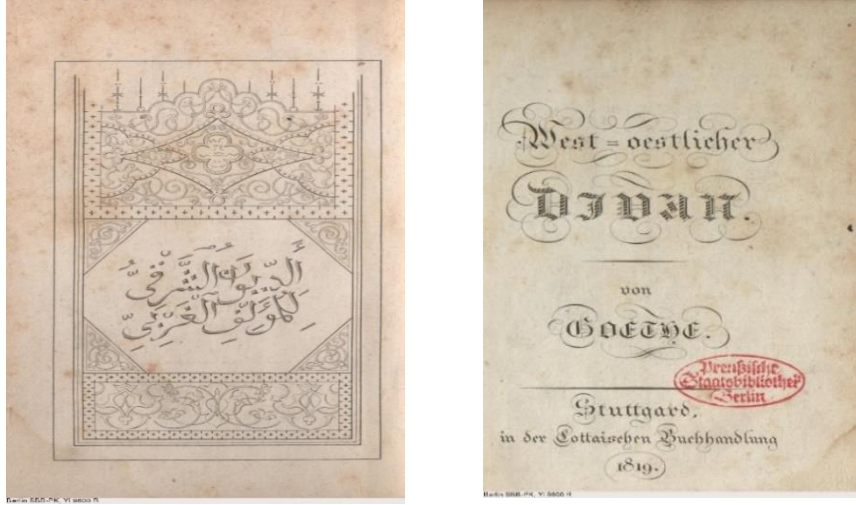 أَلدِّيوَانُ الشَّرْقِيُّ
لِلْمُؤَلِّفِ الْغَرْبِيِّ
Berlin SBB-PK, Yl 9800 R
West=oestlicher
DIVAN.
von
GOETHE.
Preußische
Staatsbibliothek
Berlin
Stuttgard,
in der Cottaischen Buchhandlung
1819.
Berlin SBB-PK, Yl 9800 R